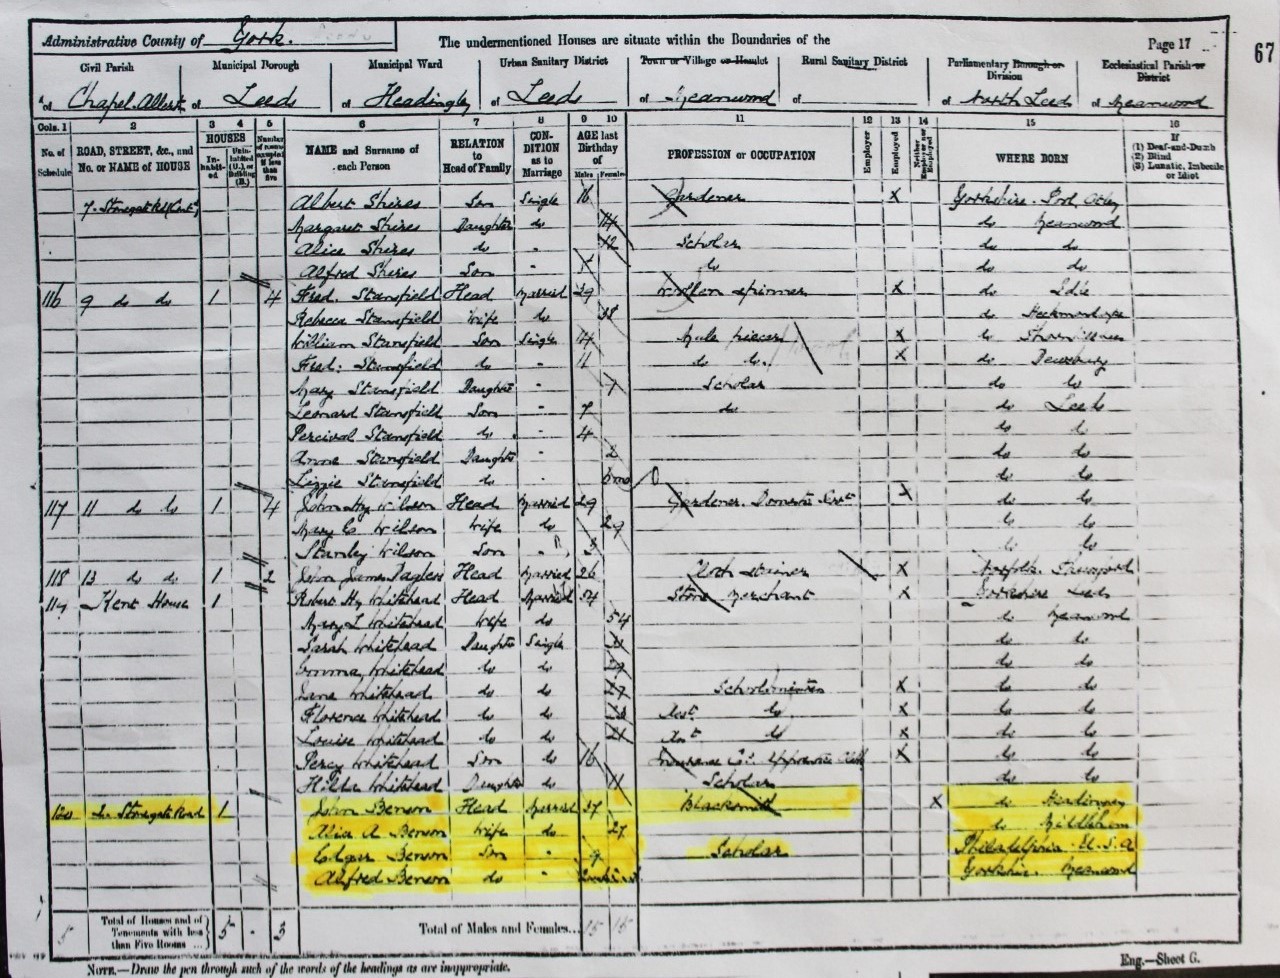 Administrative County of York.
The undermentioned Houses are situate within the Boundaries of the
Page 17
67
Civil Parish
Municipal Borough
Municipal Ward
Urban Sanitary District
Town or Village or Hamlet
Rural Sanitary District
Parliamentary Borough or Division
Ecclesiastical Parish or District
of Chapel Allerton of Leeds of Headingley of Leeds of Meanwood of of North Leeds of Meanwood
Cols. 1 2 3 4 5 6 7 8 9 10 11 12 13 14 15 16
No. of Schedule
ROAD, STREET, &c., and No. or NAME of HOUSE
HOUSES
In-habit-ed
Unin-habited (U.), or Building (B.)
Number of rooms occupied if less than five
NAME and Surname of each Person
RELATION to Head of Family
CON-DITION as to Marriage
AGE last Birthday of
Males Females
PROFESSION or OCCUPATION
Employer
Employed
Neither Employer nor Employed
WHERE BORN
If
(1) Deaf-and-Dumb
(2) Blind
(3) Lunatic, Imbecile or Idiot
7. Stonegate Rd (Cont) Albert Shires Son Single 16 Gardener X Yorkshire Pool Otley
Margaret Shires Daughter do 14 do Meanwood
Alice Shires do - 12 Scholar do do
Alfred Shires Son - do do do
116 9 do do 1 4 Fred. Stansfield Head Married 39 Woollen Spinner X do Idle
Rebecca Stansfield Wife do 38 do Heckmondwike
William Stansfield Son Single 14 Mule piecer X do
Fred: Stansfield do - 11 do do. X do Dewsbury
Mary Stansfield Daughter - Scholar do do
Leonard Stansfield Son - 7 do do Leeds
Percival Stansfield do - 4 do do
Anne Stansfield Daughter - 2 do do
Lizzie Stansfield do - 6mo do do
117 11 do do 1 4 John Hy Wilson Head Married 29 Gardener Domestic Servt X do do
Mary E Wilson Wife do 29 do do
Stanley Wilson Son - 3 do do
118 13 do do 1 2 John James Head Married 26 Cloth Stainer X Norfolk
119 Kent House 1 Robert Hy Whitehead Head Married 54 Stone Merchant X Yorkshire Leeds
Mary L Whitehead Wife do 54 do Meanwood
Sarah Whitehead Daughter Single do do
Emma Whitehead do do 29 do do
Jane Whitehead do do 27 Schoolmistress X do do
Florence Whitehead do do Asst. do X do do
Louise Whitehead do do 21 Asst do X do do
Percy Whitehead Son do 16 Insurance Co. Apprentice Clerk X do do
Hilda Whitehead Daughter do 11 Scholar do do
120 2 Stonegate Road 1 John Benson Head Married 37 Blacksmith X do Headingley
Alice A Benson Wife do 27 do Middleham
Edgar Benson Son - 9 Scholar Philadelphia U.S.A
Alfred Benson do - Yorkshire Meanwood
5 Total of Houses and of Tenements with less than Five Rooms ... 5 - 3 Total of Males and Females... 15 15
NOTE.—Draw the pen through such of the words of the headings as are inappropriate.
Eng.—Sheet G.